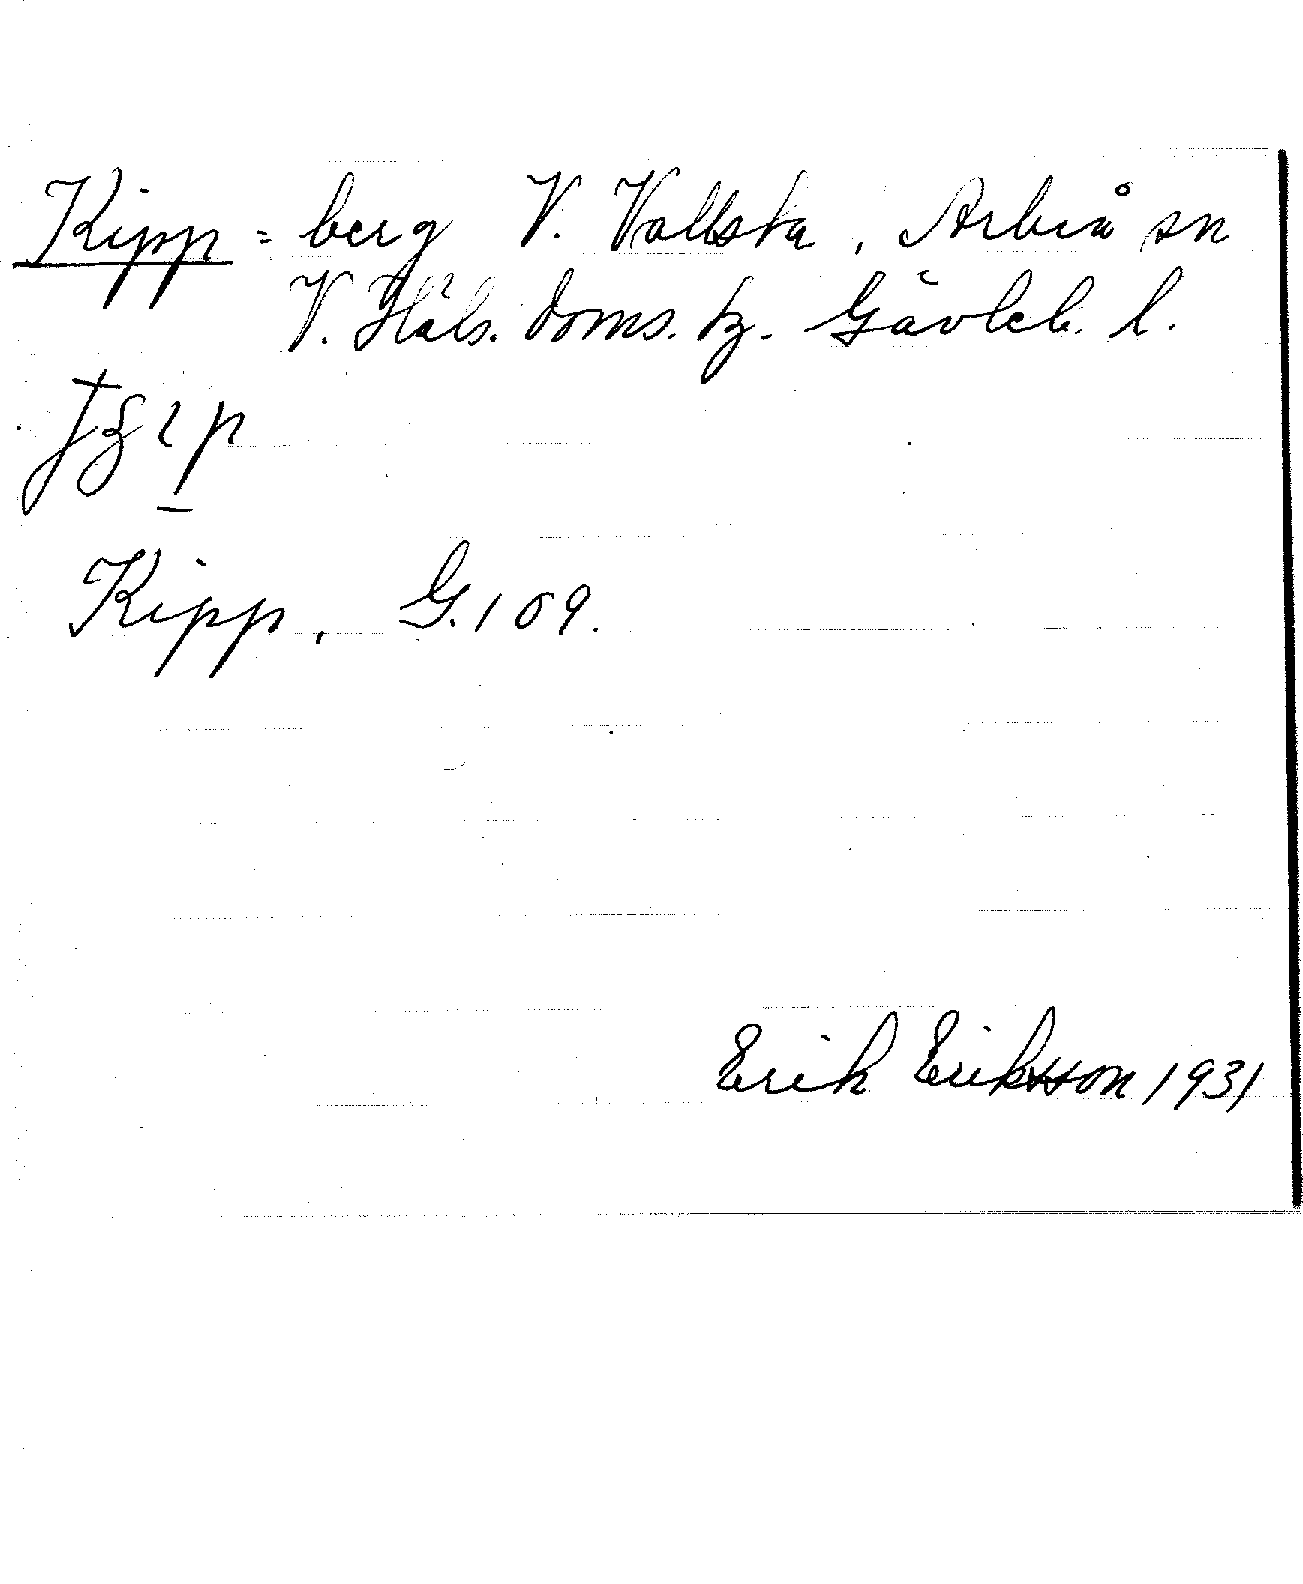 Kipp = berg V. Vallsta, Arbrå sn
V. Häls. doms. tg. Gävleb. l.
Kipp, G. 109.
Erik Eriksson 1931